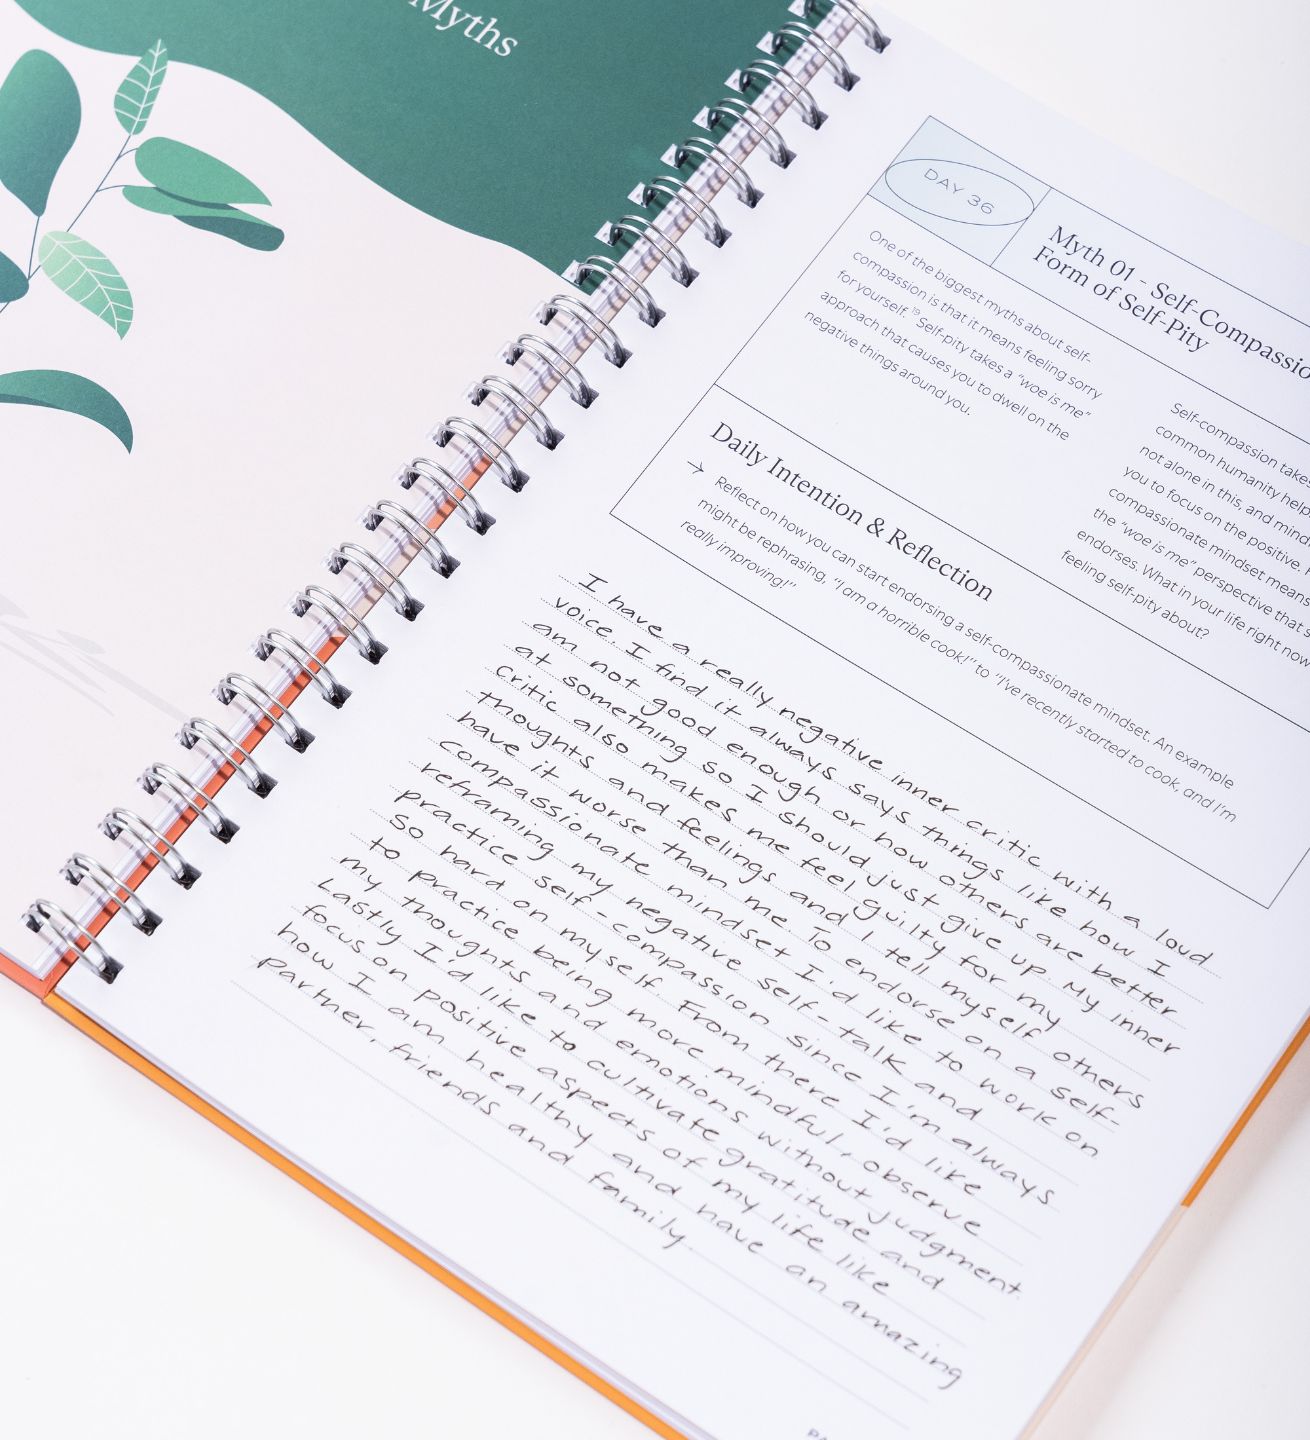 Myths
DAY 36
Myth 01 - Self-Compassio
Form of Self-Pity
One of the biggest myths about self-
compassion is that it means feeling sorry
for yourself.¹⁹ Self-pity takes a "woe is me"
approach that causes you to dwell on the
negative things around you.
Self-compassion takes
common humanity help
not alone in this, and mind
you to focus on the positive.
compassionate mindset means
the "woe is me" perspective that s
endorses. What in your life right now
feeling self-pity about?
Daily Intention & Reflection
→ Reflect on how you can start endorsing a self-compassionate mindset. An example
might be rephrasing, "I am a horrible cook!" to "I've recently started to cook, and I'm
really improving!"
I have a really negative inner critic with a loud
voice. I find it always says things like how I
am not good enough or how others are better
at something so I should just give up. My inner
critic also makes me feel guilty for my
thoughts and feelings and I tell myself others
have it worse than me. To endorse on a self-
compassionate mindset I'd like to work on
reframing my negative self-talk and
practice self-compassion since I'm always
so hard on myself. From there I'd like
to practice being more mindful, observe
my thoughts and emotions without judgment.
Lastly I'd like to cultivate gratitude and
focus on positive aspects of my life like
how I am healthy and have an amazing
partner, friends and family.